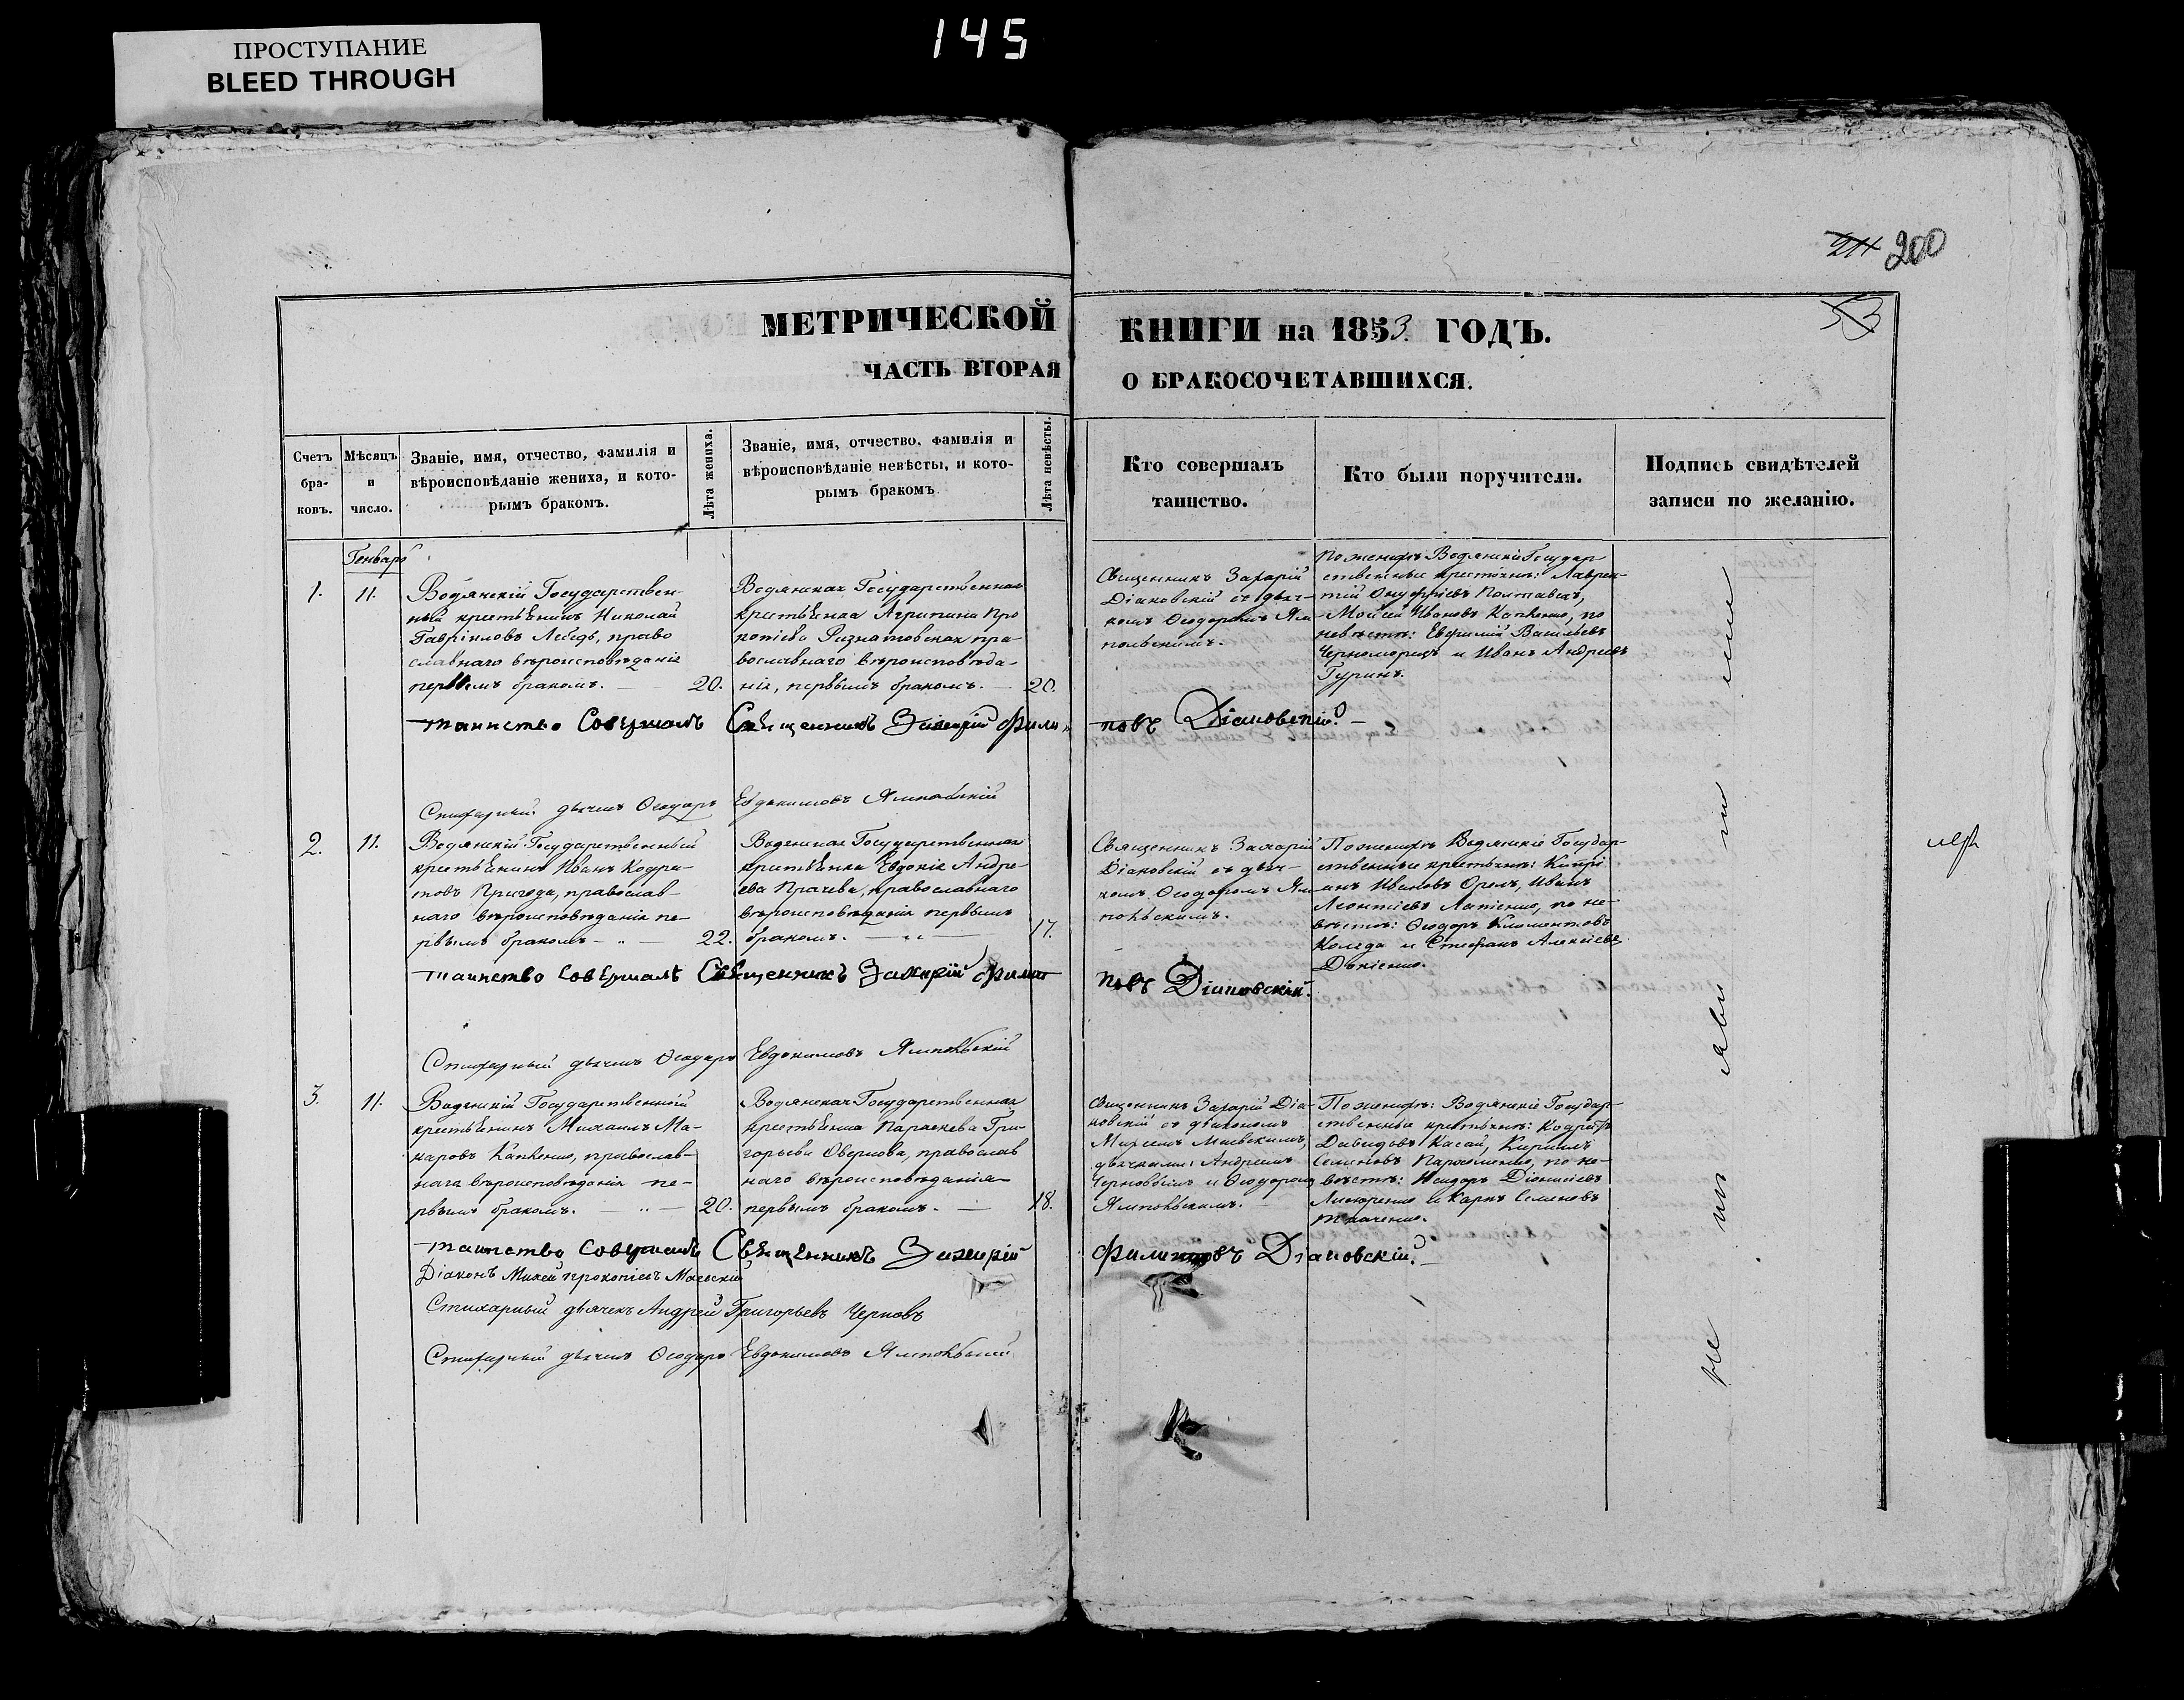 ПРОСТУПАНИЕ
BLEED THROUGH
145
200
53
МЕТРИЧЕСКОЙ КНИГИ на 1853 ГОДЪ.
ЧАСТЬ ВТОРАЯ О БРАКОСОЧЕТАВШИХСЯ.
Счетъ бра-ковъ.
Мѣсяцъ и число.
Званіе, имя, отчество, фамилія и
вѣроисповѣданіе жениха, и кото-
рымъ бракомъ.
Лѣта жениха.
Званіе, имя, отчество, фамилія и
вѣроисповѣданіе невѣсты, и кото-
рымъ бракомъ
Лѣта невѣсты.
Кто совершалъ
таинство.
Кто были поручители.
Подпись свидѣтелей
записи по желанію.
Генваря
1.
11.
Водянскій Государствен-
ный крестьянинъ Николай
Гавріиловъ Лебедь, право
славнаго вѣроисповѣданія
первымъ бракомъ.
20.
Водянская Государственная
крестьянка Агрипина Про
копіева Ризнатовская пра-
вославнаго вѣроисповѣда-
нія, первымъ бракомъ.
20.
Священникъ Захарій
Діаковскій съ дьяч-
комъ Ѳеодоромъ Ям
польскимъ.
По женихѣ Водянскіе Государ
ственные крестьяне: Лаврен-
тій Онуфріевъ Полтавецъ,
Мойсей Ивановъ Капкенко, по
невѣстѣ: Евфимій Васильевъ
Черноморецъ и Иванъ Андреевъ
Гуринъ.
таинство Совершалъ Священникъ Захарій Филип
повъ Діаковскій.
Стихарный дьячекъ Ѳеодоръ Евдокимовъ Ямпольскій
2.
11.
Водянскій Государственный
крестьянинъ Иванъ Кодра-
товъ Пригода, православ-
наго вѣроисповѣданія пе-
рвымъ бракомъ
22.
Водянская Государственная
крестьянка Евдокія Андре-
ева Прачева, православнаго
вѣроисповѣданія первымъ
бракомъ.
17.
Священникъ Захарій
Діаковскій съ дьяч-
комъ Ѳеодоромъ Ям
польскимъ.
По женихѣ Водянскіе Государ-
ственные крестьяне: Кипрі
анъ Ивановъ Орелъ, Иванъ
Леонтіевъ Лапенко, по не-
вѣстѣ: Ѳеодоръ Климентовъ
Коляда и Стефанъ Алексіевъ
таинство совершалъ Священникъ Захарій Филип
повъ Діаковскій.
Стихарный дьячекъ Ѳеодоръ Евдокимовъ Ямпольскій
3.
11.
Водянскій Государственный
крестьянинъ Михаилъ Ма-
каровъ Капкенко, православ-
наго вѣроисповѣданія пе-
рвымъ бракомъ.
20.
Водянская Государственная
крестьянка Параскева Гри-
горьева православ
наго вѣроисповѣданія
первымъ бракомъ.
18.
Священникъ Захарій Діа-
ковскій съ діакономъ
Михеемъ Маевскимъ,
дьячками: Андреемъ
Черновымъ и Ѳеодоромъ
Ямпольскимъ.
По женихѣ: Водянскіе Государ-
ственные крестьяне: Кодратъ
Давидовъ Касай, Кириллъ
Семеновъ Пархоменко, по не-
вѣстѣ: Исидоръ Діонисіевъ
и Карпъ Семеновъ
Ткаченко.
таинство Совершалъ Священникъ Захарій
Филиповъ Діаковскій.
Діаконъ Михей Прокопіевъ Маевскій
Стихарный дьячекъ Андрей Григорьевъ Черновъ
Стихарный дьячекъ Ѳеодоръ Евдокимовъ Ямпольскій